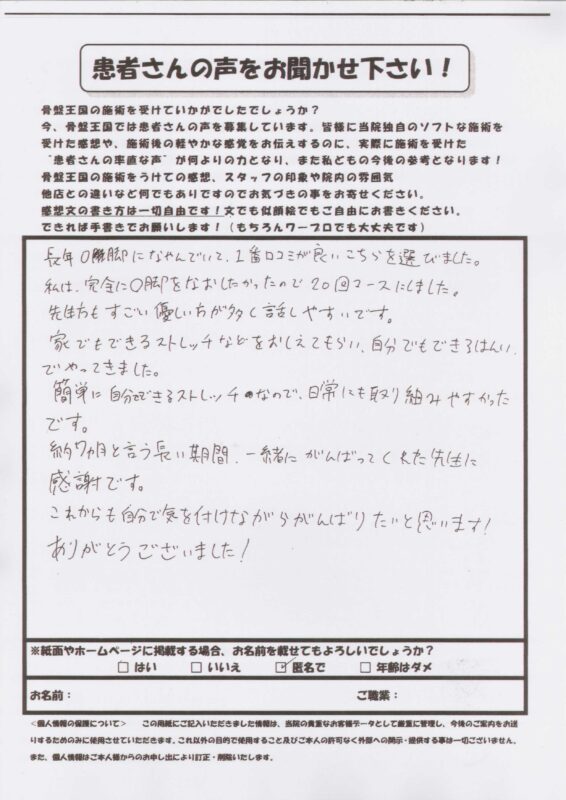 患者さんの声をお聞かせ下さい！
骨盤王国の施術を受けていかがでしたでしょうか？
今、骨盤王国では患者さんの声を募集しています。皆様に当院独自のソフトな施術を
受けた感想や、施術後の軽やかな感覚をお伝えするのに、実際に施術を受けた
"患者さんの率直な声"が何よりの力となり、また私どもの今後の参考となります！
骨盤王国の施術をうけての感想、スタッフの印象や院内の雰囲気
他店との違いなど何でもありですのでお気づきの事をお寄せください。
感想文の書き方は一切自由です！文でも似顔絵でもご自由にお書きください。
できれば手書きでお願いします！（もちろんワープロでも大丈夫です）
長年O脚になやんでいて、1番口コミが良いこちらを選びました。
私は、完全にO脚をなおしたかったので20回コースにしました。
先生方もすごい優しい方が多く話しやすいです。
家でもできるストレッチなどをおしえてもらい、自分でもできるはんい
でやってきました。
簡単に自分でできるストレッチなので、日常にも取り組みやすかった
です。
約7カ月と言う長い期間、一緒にがんばってくれた先生に
感謝です。
これからも自分で気を付けながらがんばりたいと思います！
ありがとうございました！
※紙面やホームページに掲載する場合、お名前を載せてもよろしいでしょうか？
□ はい □ いいえ ☑ 匿名で □ 年齢はダメ
お名前： ご職業：
＜個人情報の保護について＞ この用紙にご記入いただきました情報は、当院の貴重なお客様データとして厳重に管理し、今後のご案内をお送
りするためのみに使用させていただきます。これ以外の目的で使用すること及びご本人の許可なく外部への開示・提供する事は一切ございません。
また、個人情報はご本人様からのお申し出により訂正・削除いたします。